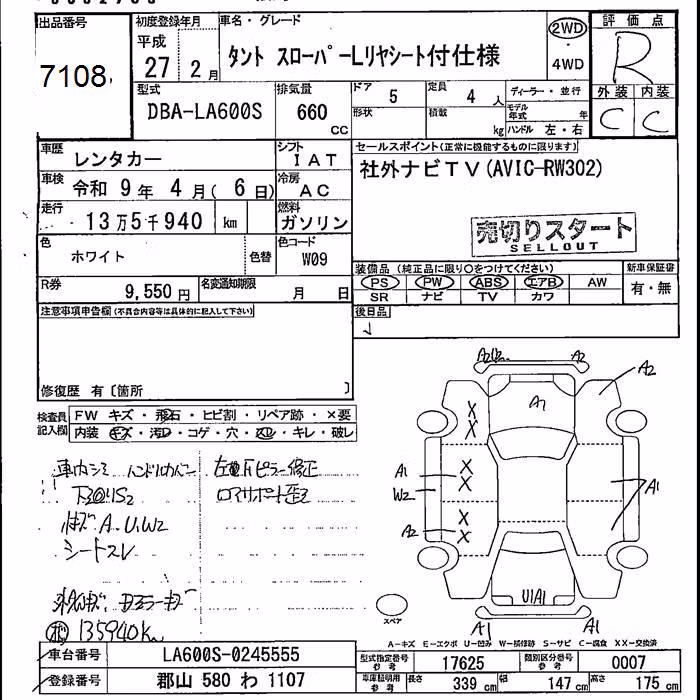 出品番号
7108
初度登録年月
平成
27 2月
車名・グレード
タント スローパーLリヤシート付仕様
2WD
・
4WD
評価点
R
外装 内装
C C
型式
DBA-LA600S
排気量
660
CC
ドア
5
定員
4 人
形状
積載
kg
ディーラー・並行
モデル年式 年
ハンドル 左・右
車歴
レンタカー
シフト
IAT
車検
令和 9年 4月( 6日)
冷房
AC
走行
13万5千940 km
燃料
ガソリン
色
ホワイト
色替
色コード
W09
R券
9,550円
名変通知期限
月 日
セールスポイント(正常に機能するものに限ります)
社外ナビTV(AVIC-RW302)
売切りスタート
SELLOUT
装備品 (純正品に限り○をつけてください)
新車保証書
PS PW ABS エアB AW
SR ナビ TV カワ
有・無
後日品
注意事項申告欄(不具合内容等は具体的に記入して下さい)
修復歴 有〔箇所 〕
検査員記入欄
FW キズ・飛石・ヒビ割・リペア跡・×要
内装 キズ・汚レ・コゲ・穴・スレ・キレ・破レ
車内シミ ハンドルカバー
下回りS2
キズA.U.W2
シートスレ
左右Fピラー修正
ロアサポート歪
135940K
A2 A2
A2
A7
X
X
A1
W2
X
X
A1
A2
X
X
U1A1
A1 A1
スペア
A-キズ E-エクボ U-凹み W-補修跡 S-サビ C-腐食 XX-交換済
車台番号
LA600S-0245555
登録番号
郡山 580 わ 1107
型式指定番号
参考
17625
類別区分番号
参考
0007
車庫証明用
参考
長さ 339 cm
幅 147 cm
高さ 175 cm